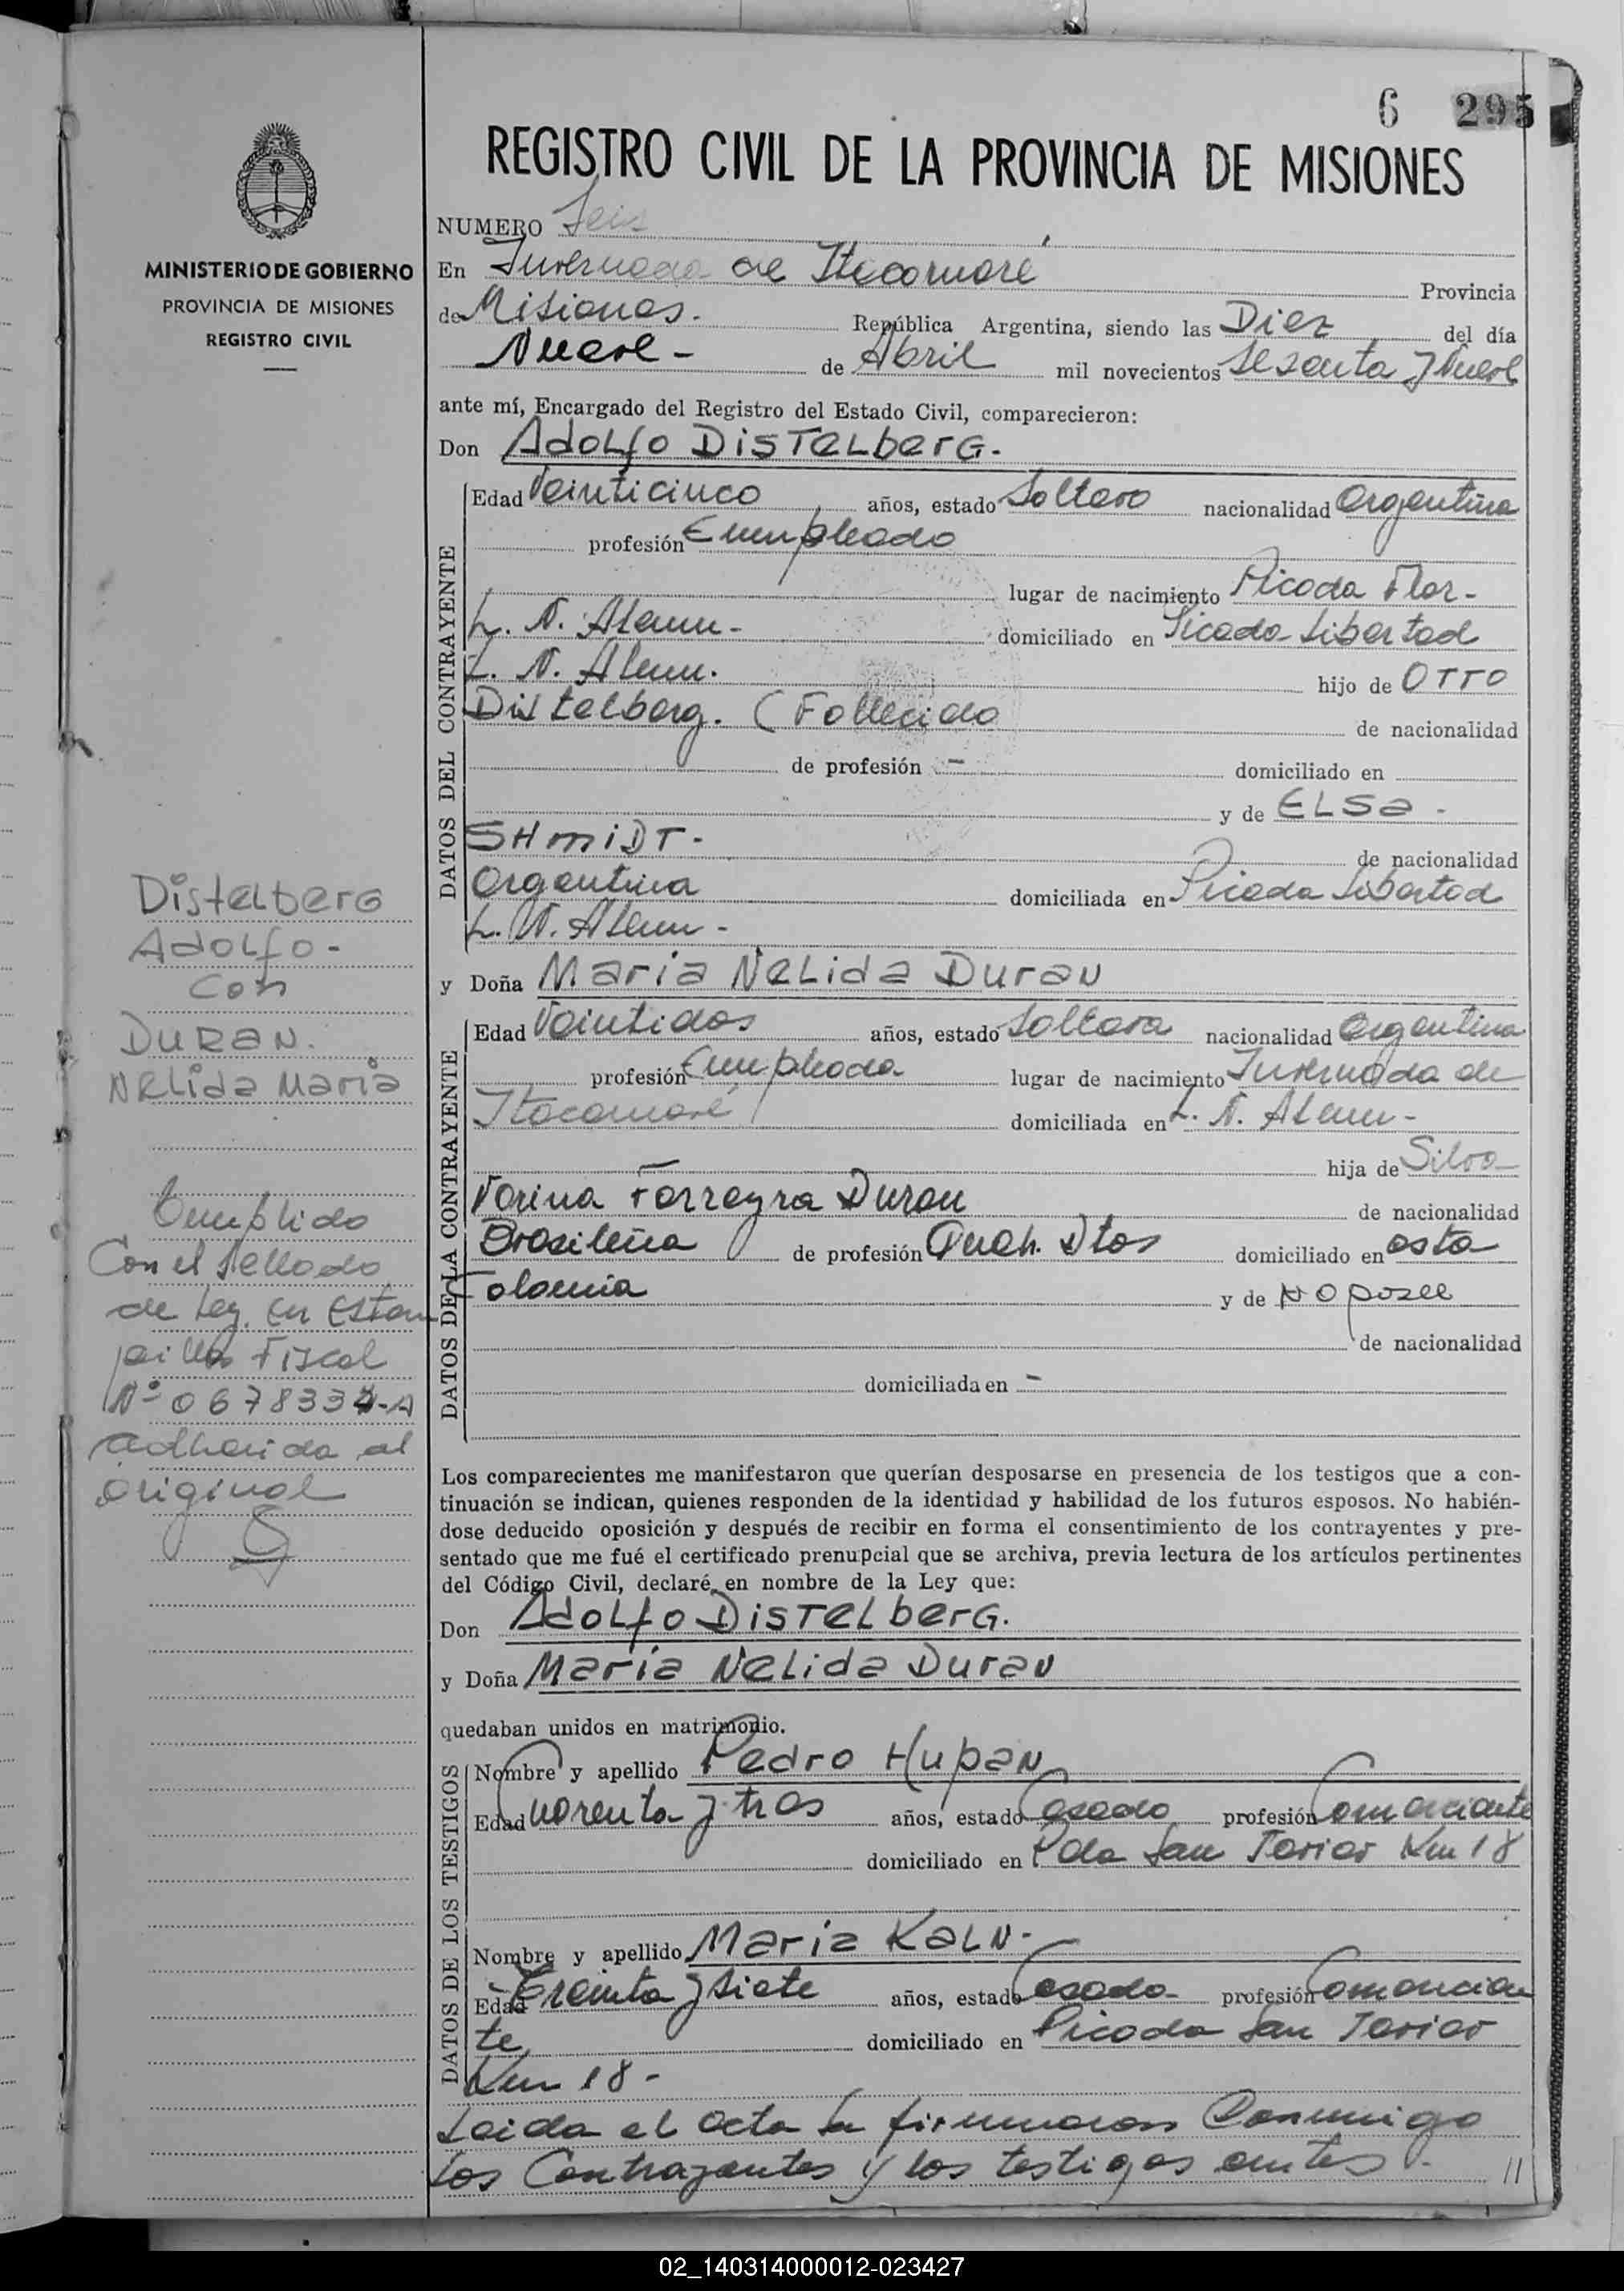 6 295
REGISTRO CIVIL DE LA PROVINCIA DE MISIONES
MINISTERIO DE GOBIERNO
PROVINCIA DE MISIONES
REGISTRO CIVIL
NUMERO Seis
En Invernada de Itacaruaré Provincia
de Misiones. República Argentina, siendo las Diez del día
Nueve - de Abril mil novecientos Sesenta y Nueve
ante mí, Encargado del Registro del Estado Civil, comparecieron:
Don Adolfo Distelberg.
DATOS DEL CONTRAYENTE
Edad Veinticinco años, estado Soltero nacionalidad Argentina
profesión Empleado
lugar de nacimiento Picada Flor -
L. N. Alem - domiciliado en Picada Libertad
L. N. Alem. hijo de Otto
Distelberg. (Fallecido de nacionalidad
de profesión - domiciliado en
y de Elsa -
Shmidt - de nacionalidad
Argentina domiciliada en Picada Libertad
L. N. Alem -
y Doña Maria Nelida Duran
DATOS DE LA CONTRAYENTE
Edad Veintidos años, estado Soltera nacionalidad Argentina
profesión Empleada lugar de nacimiento Invernada de
Itacaruaré domiciliada en L. N. Alem -
hija de Silva
Verina Ferreyra Duran de nacionalidad
Brasileña de profesión Queh. Dtos domiciliado en esta
Colonia y de No posee
de nacionalidad
domiciliada en -
Los comparecientes me manifestaron que querían desposarse en presencia de los testigos que a con-
tinuación se indican, quienes responden de la identidad y habilidad de los futuros esposos. No habién-
dose deducido oposición y después de recibir en forma el consentimiento de los contrayentes y pre-
sentado que me fué el certificado prenupcial que se archiva, previa lectura de los artículos pertinentes
del Código Civil, declaré en nombre de la Ley que:
Don Adolfo Distelberg.
y Doña Maria Nelida Duran
quedaban unidos en matrimonio.
DATOS DE LOS TESTIGOS
Nombre y apellido Pedro Hupan
Edad Cuarenta y tres años, estado Casado profesión Comerciante
domiciliado en Pda San Javier Km 18
Nombre y apellido Maria Kaln -
Edad Treinta y siete años, estado Casada profesión Comercian
te domiciliado en Picada San Javier
Km 18 -
Leida el acta la firmaron Conmigo
los Contrayentes y los testigos antes. //
Distelberg
Adolfo -
Con
Duran.
Nelida Maria
Cumplido
Con el Sellado
de Ley. en Estam
pilla Fiscal
Nº 0678334-A
adherida al
original
02_140314000012-023427